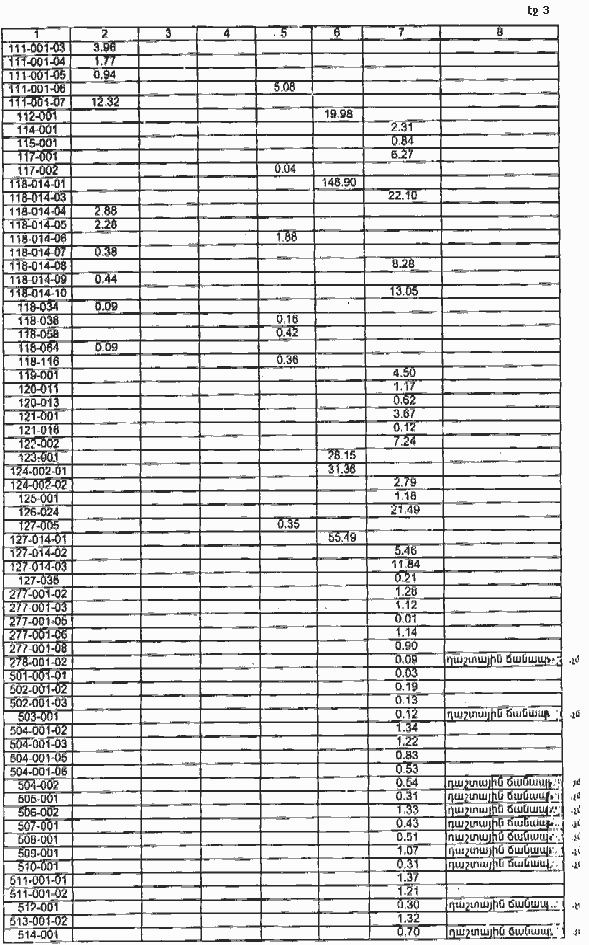 էջ 3
1 2 3 4 5 6 7 8
111-001-03 3.96
111-001-04 1.77
111-001-05 0.94
111-001-06 5.08
111-001-07 12.32
112-001 19.98
114-001 2.31
115-001 0.84
117-001 6.27
117-002 0.04
118-014-01 148.90
118-014-03 22.10
118-014-04 2.88
118-014-05 2.26
118-014-06 1.88
118-014-07 0.38
118-014-08 8.28
118-014-09 0.44
118-014-10 13.05
118-034 0.09
118-038 0.16
118-058 0.42
118-064 0.09
118-116 0.36
119-001 4.50
120-011 1.17
120-013 0.62
121-001 3.67
121-018 0.12
122-002 7.24
123-901 28.15
124-002-01 31.36
124-002-02 2.79
125-001 1.18
126-024 21.49
127-005 0.35
127-014-01 55.49
127-014-02 5.46
127-014-03 11.84
127-036 0.21
277-001-02 1.28
277-001-03 1.12
277-001-05 0.01
277-001-06 1.14
277-001-08 0.90
278-001-02 0.09 դաշտային ճանապ
501-001-01 0.03
502-001-02 0.19
502-001-03 0.13
503-001 0.12 դաշտային ճանապ
504-001-02 1.34
504-001-03 1.22
504-001-05 0.83
504-001-06 0.53
504-002 0.54 դաշտային ճանապ
505-001 0.31 դաշտային ճանապ
506-002 1.33 դաշտային ճանապ
507-001 0.43 դաշտային ճանապ
508-001 0.51 դաշտային ճանապ
509-001 1.07 դաշտային ճանապ
510-001 0.31 դաշտային ճանապ
511-001-01 1.37
511-001-02 1.21
512-001 0.30 դաշտային ճանապ
513-001-02 1.32
514-001 0.70 դաշտային ճանապ